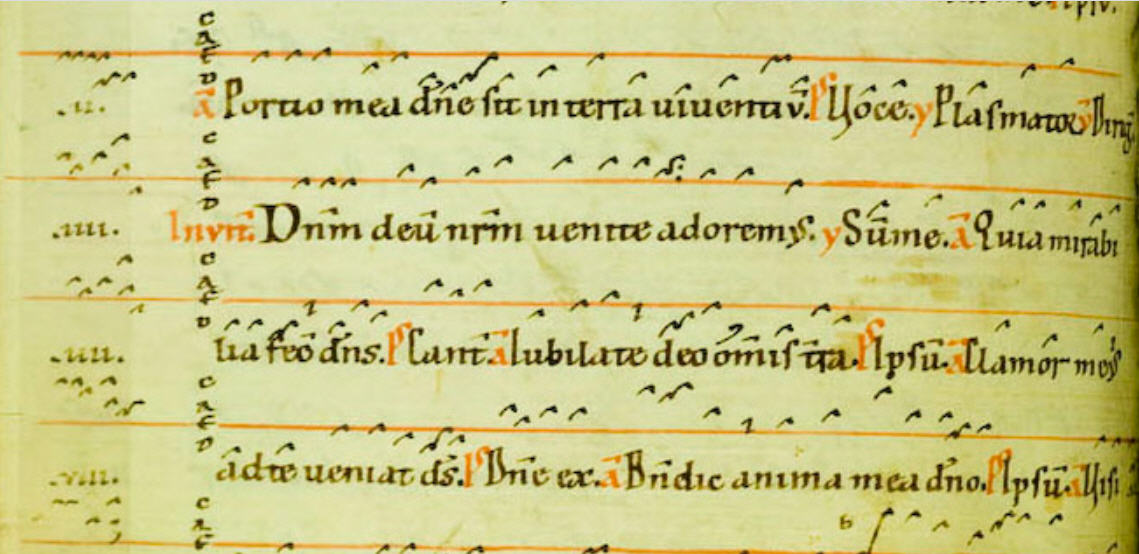 .ii. ā Portio mea dñe sit in terra uiuentiū. Ps Uoce. y Plasmator y Dirig
.iiii. Invit. Dnm deū nrm uenite adoremus. y Sūme. ā Quia mirabi
.iiii. lia fec̄ dñs. Ps Cant ā Iubilate deo om̄is t̄ra. Ps Ipsū. ā Clamor meus
.viii. ad te ueniat ds̄. Ps Dñe ex. ā Bn̄dic anima mea dño. Ps Ipsū. ā Uisi